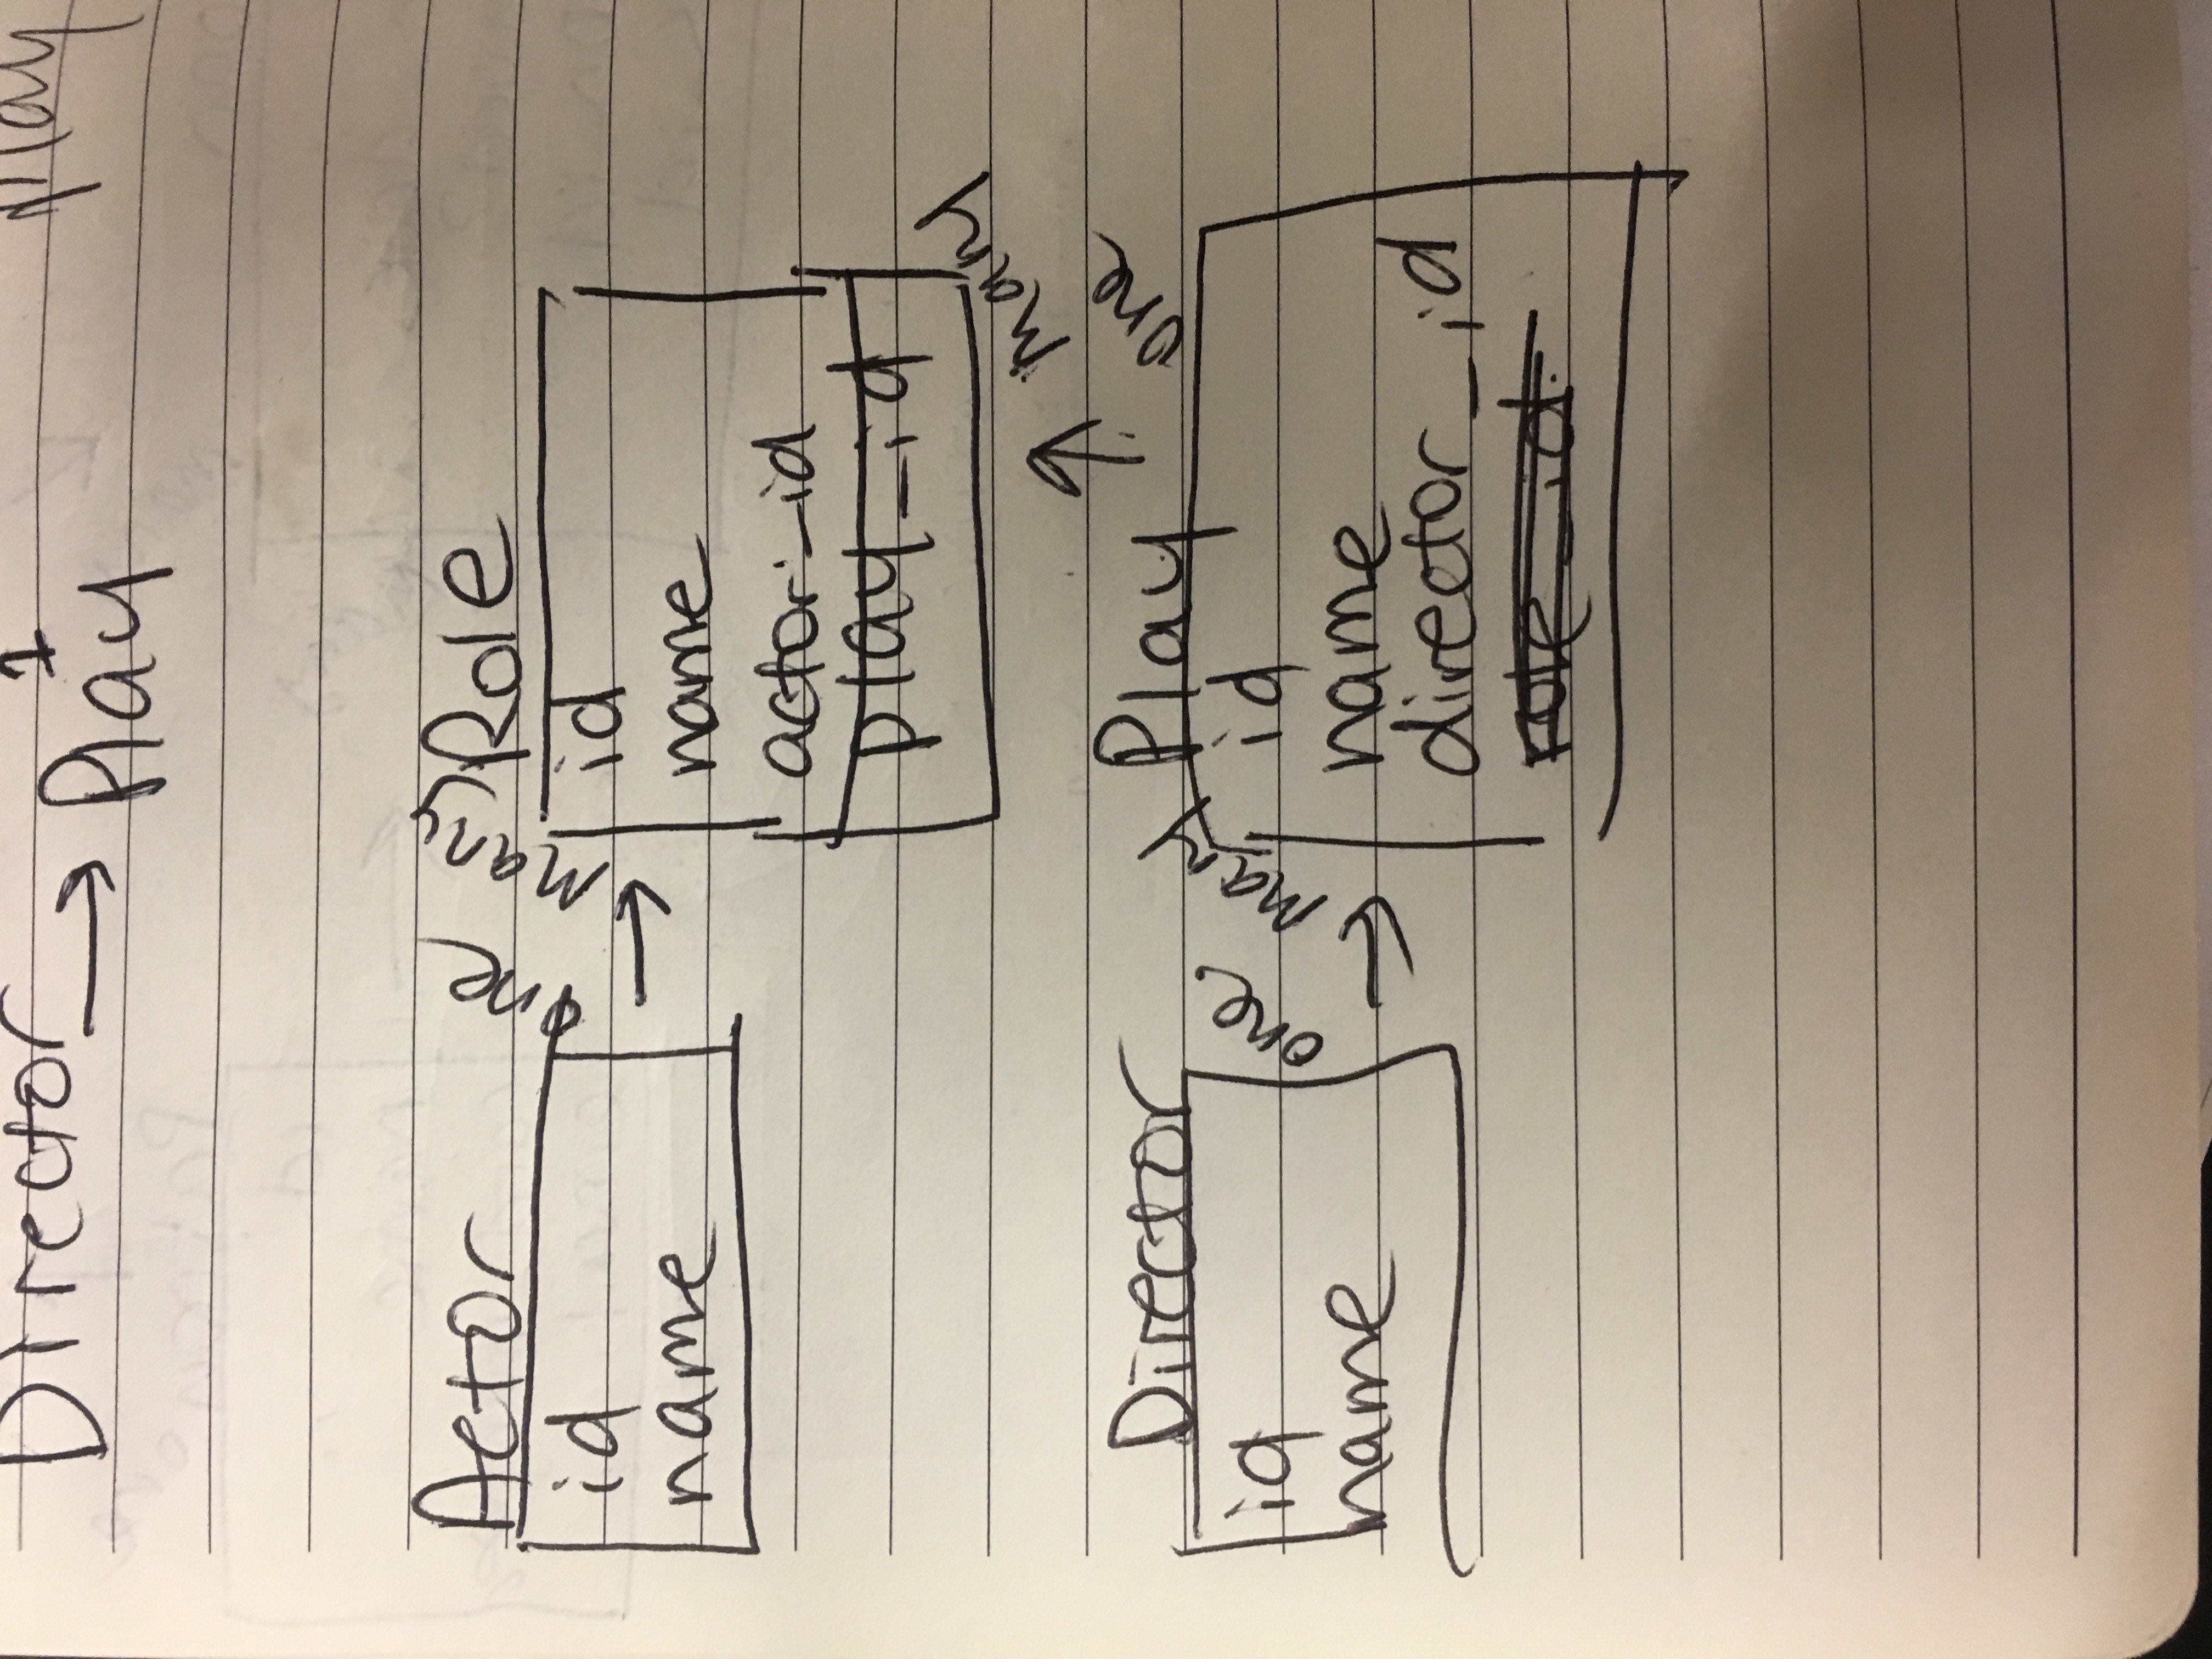 Director → Play
1
play
Actor
id
name
one
many
Role
id
name
actor_id
play_id
many
one
Director
id
name
one
many
Play
id
name
director_id
role_id